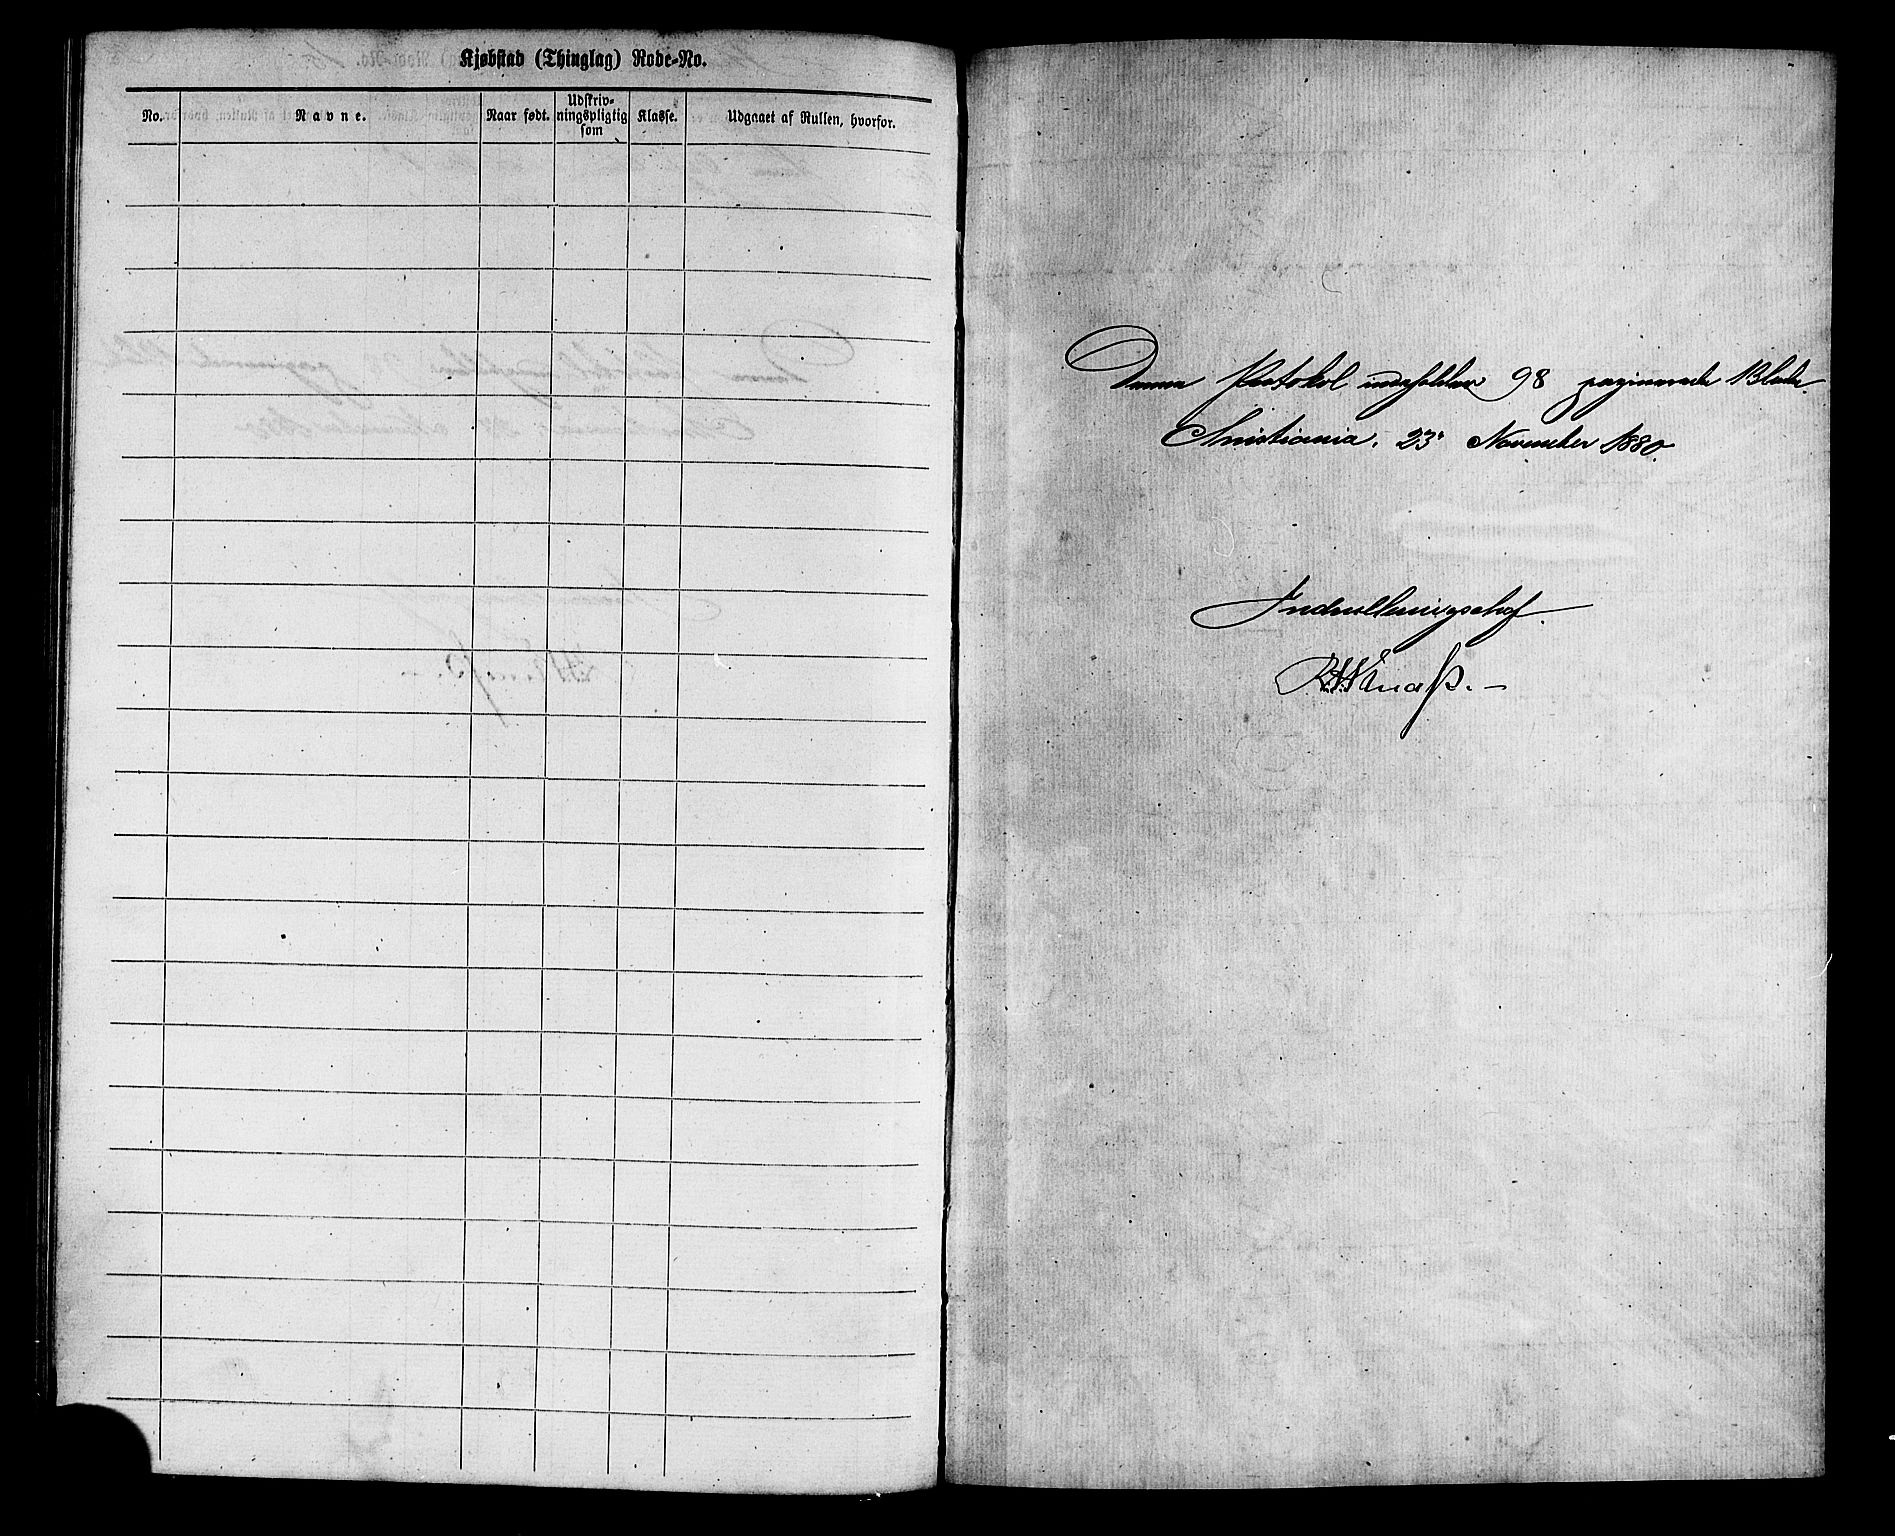 Kjøbstad (Thinglag) Rode-No.
No. Navne. Naar født. Udskriv-ningspligtig som Klasse. Udgaaet af Rullen, hvorfor.
Denne Protokol indeholder 98 paginerede Blade.
Christiania, 23' November 1880.
Indrulleringschef.